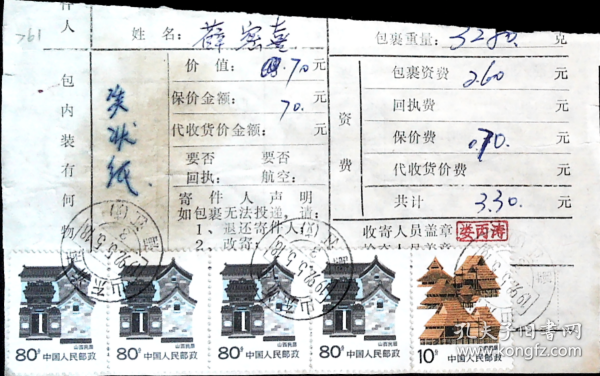 261
件人
姓名：薛密喜
包裹重量：3280.克
包内装有何物
奖状纸
价值：70元
保价金额：70.元
代收货价金额：元
要否回执：
要否航空：
寄件人声明
如包裹无法投递，请：
1、退还寄件人
2、改寄：
资费
包裹资费 2.60元
回执费元
保价费 0.70.元
代收货价费元
共计 3.30.元
收寄人员盖章 娄丙涛
山西
1992.5.5.18
80分 山西民居 中国人民邮政
80分 山西民居 中国人民邮政
80分 山西民居 中国人民邮政
80分 山西民居 中国人民邮政
10分 中国人民邮政
孔夫子旧书网
kongfz.com